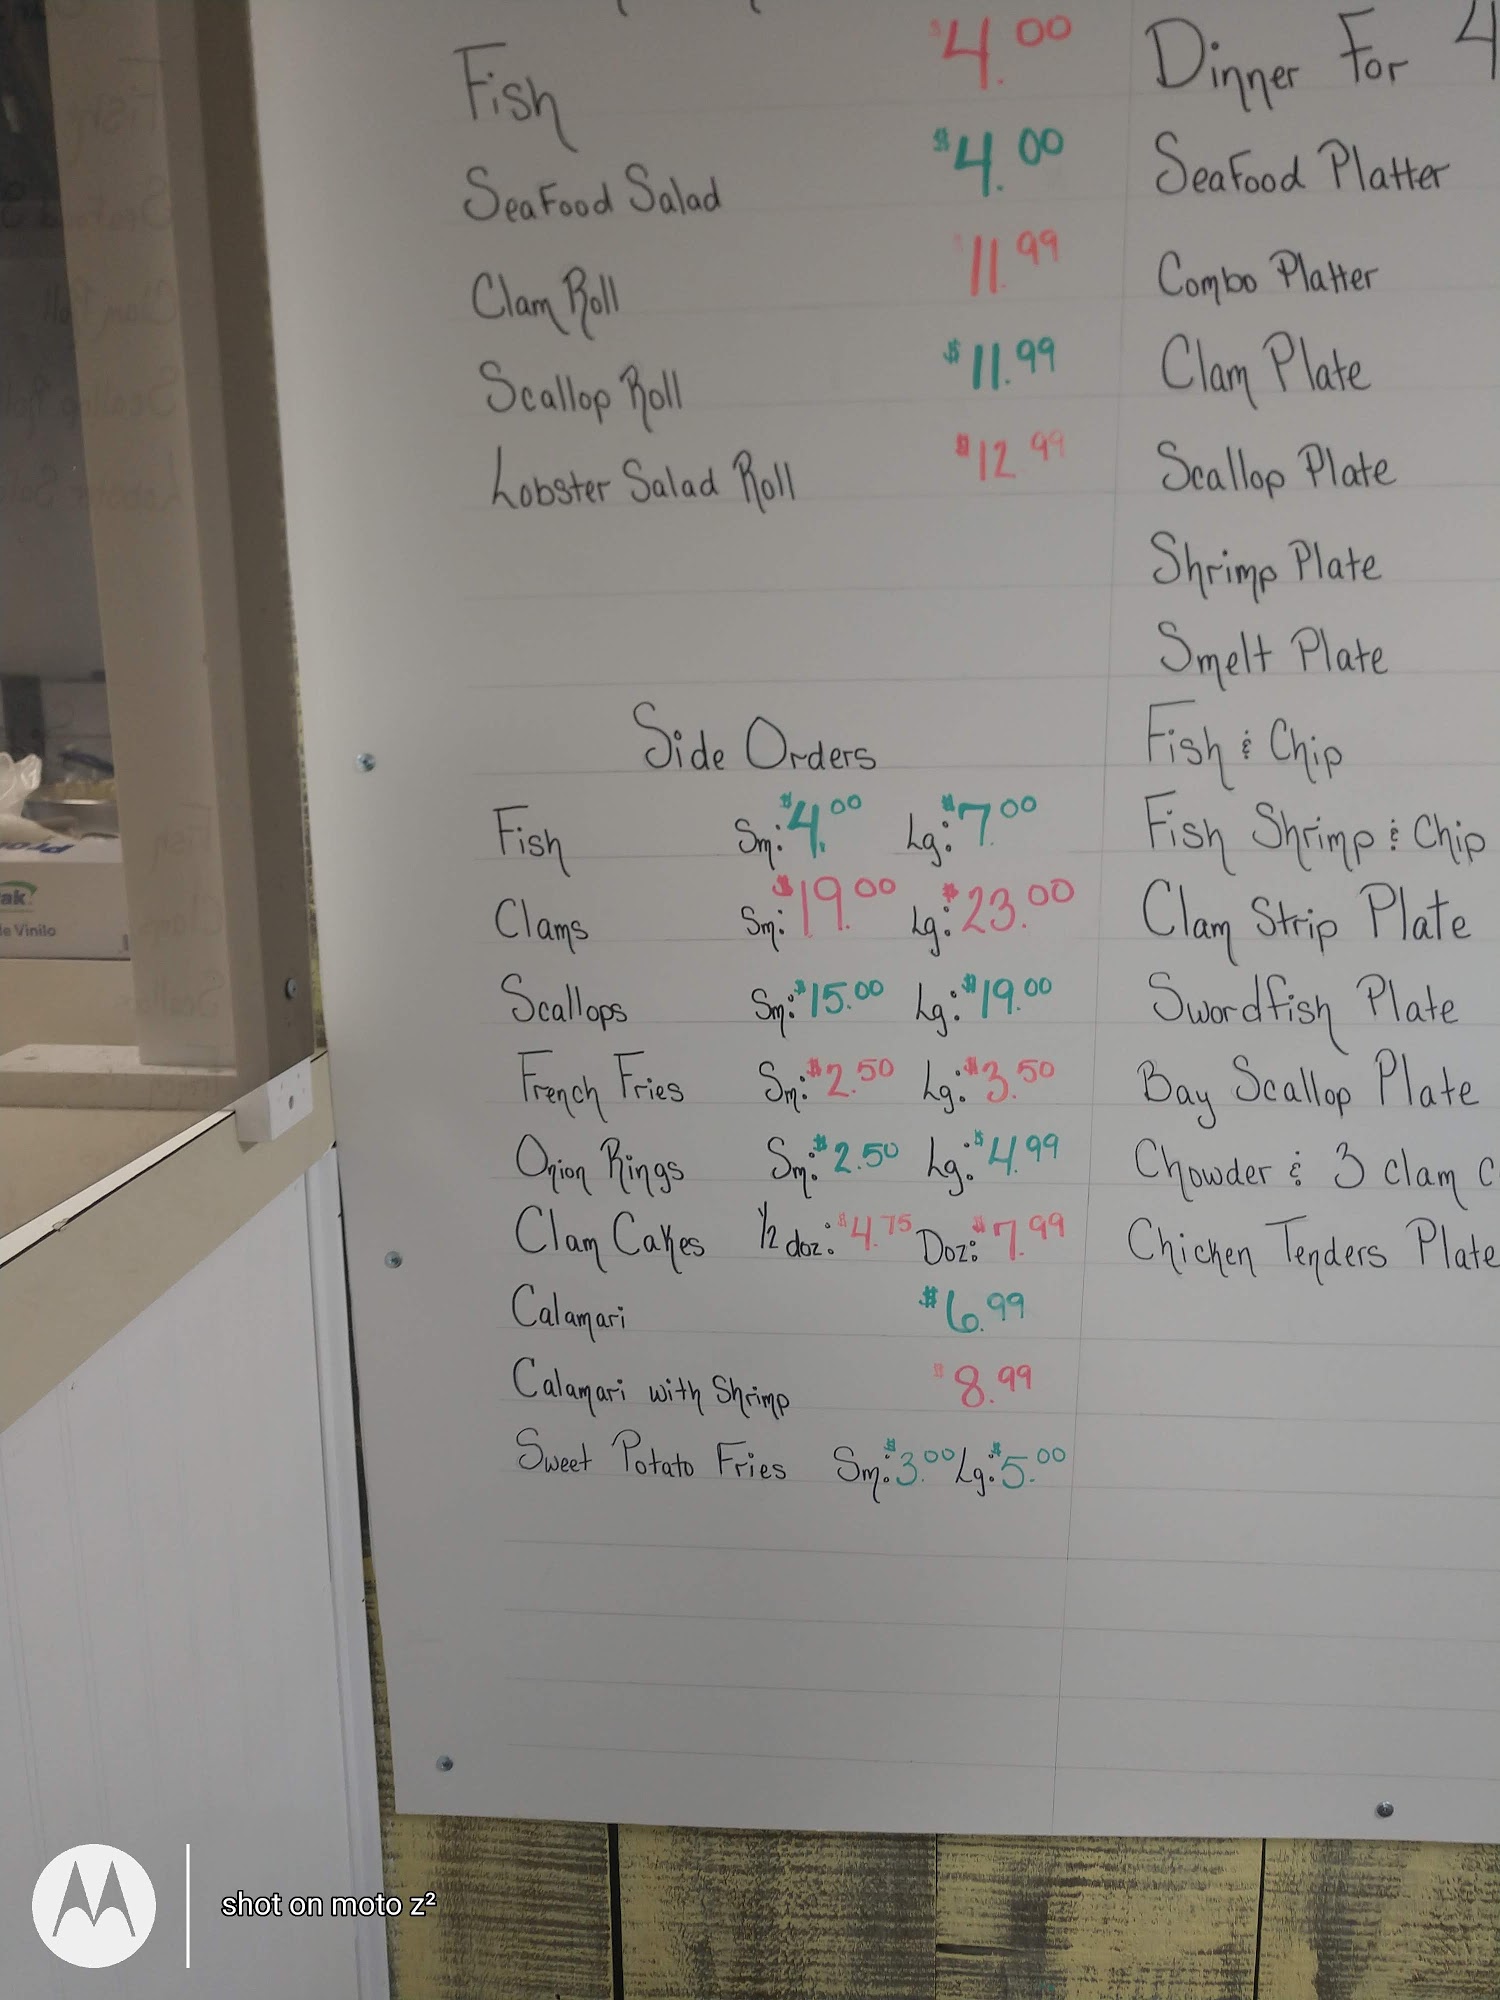 Fish $4.00
Seafood Salad $4.00
Clam Roll 11.99
Scallop Roll $11.99
Lobster Salad Roll $12.99
Side Orders
Fish Sm: $4.00 Lg: $7.00
Clams Sm: $19.00 Lg: $23.00
Scallops Sm: $15.00 Lg: $19.00
French Fries Sm: $2.50 Lg: $3.50
Onion Rings Sm: $2.50 Lg: $4.99
Clam Cakes 1/2 doz: $4.75 Doz: $7.99
Calamari $6.99
Calamari with Shrimp $8.99
Sweet Potato Fries Sm: $3.00 Lg: $5.00
Dinner For 4
Seafood Platter
Combo Platter
Clam Plate
Scallop Plate
Shrimp Plate
Smelt Plate
Fish & Chip
Fish Shrimp & Chip
Clam Strip Plate
Swordfish Plate
Bay Scallop Plate
Chowder & 3 clam c
Chicken Tenders Plate
ak
de Vinilo
shot on moto z²